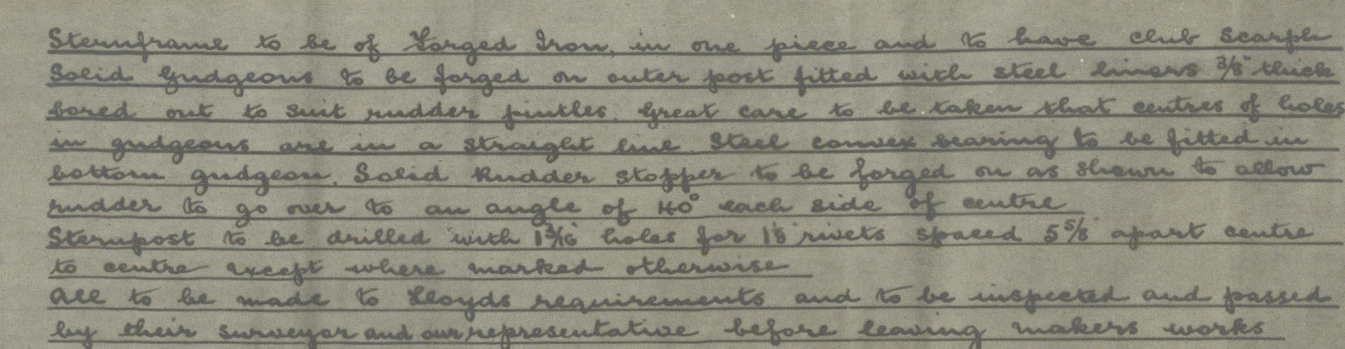 Sternframe to be of Forged Iron in one piece and to have club scarph
Solid Gudgeons to be forged on outer post fitted with steel liners 3/8" thick
bored out to suit rudder pintles. Great care to be taken that centres of holes
in gudgeons are in a straight line Steel convex bearing to be fitted in
bottom gudgeon. Solid Rudder stopper to be forged on as shown to allow
rudder to go over to an angle of 40° each side of centre
Sternpost to be drilled with 1 3/16 holes for 1 1/8 rivets spaced 5 5/8 apart centre
to centre except where marked otherwise
All to be made to Lloyds requirements and to be inspected and passed
by their surveyor and our representative before leaving makers works